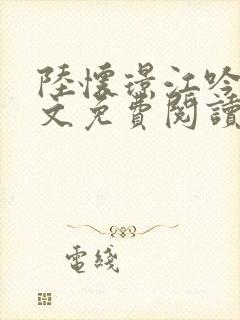 陸懷璟江吟
文免費閱讀
電綫